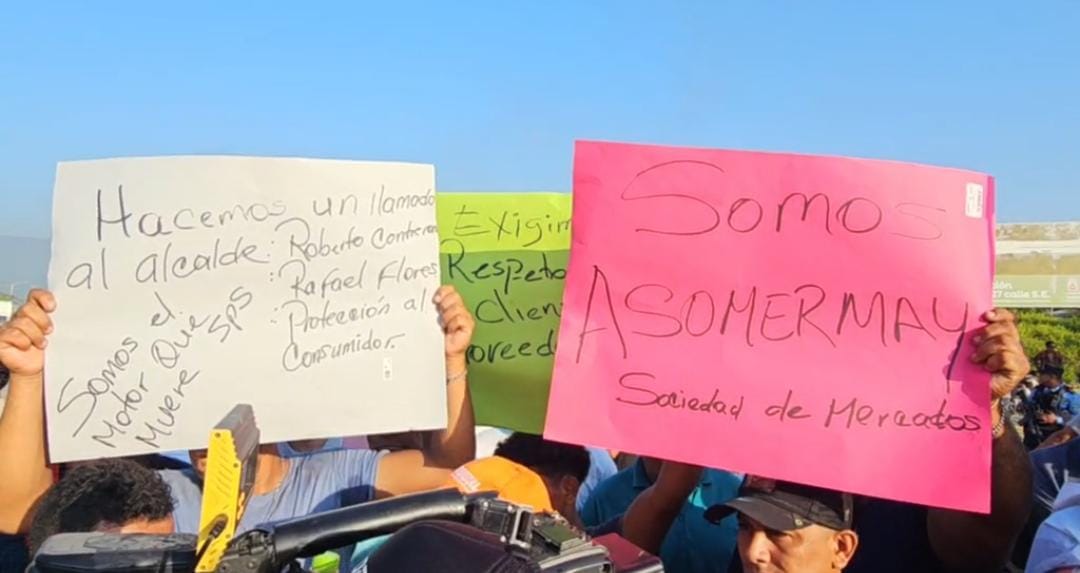 Hacemos un llamado
al alcalde: Roberto Contreras
: Rafael Flores
: Protección al
Consumidor.
Somos el
Motor Que
Muere SPS
Exigim
Respeto
Clien
oveed
Somos
ASOMERMAY
Sociedad de Mercados
ción
27 calle S.E.